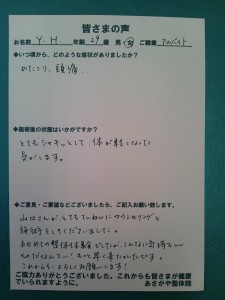 皆さまの声
お名前 Y.H 年齢 29歳 男・女 ご職業 アルバイト
◆いつ頃から、どのような症状がありましたか?
肩こり、頭痛
◆施術後の状態はいかがですか?
とてもスッキリして、体が軽くなった
気がします。
◆ご意見・ご要望などございましたら、ご記入お願い致します。
山口さんがとてもていねいにカウンセリングと
施術をしてくださいました。
初めての整体体験でしたが、こんなに気持ちいい
ものだなんて!もっと早く来たかったです。
これからもよろしくお願いします!
ご協力ありがとうございました。これからも皆さまが健康
でいられますように。 あさがや整体院